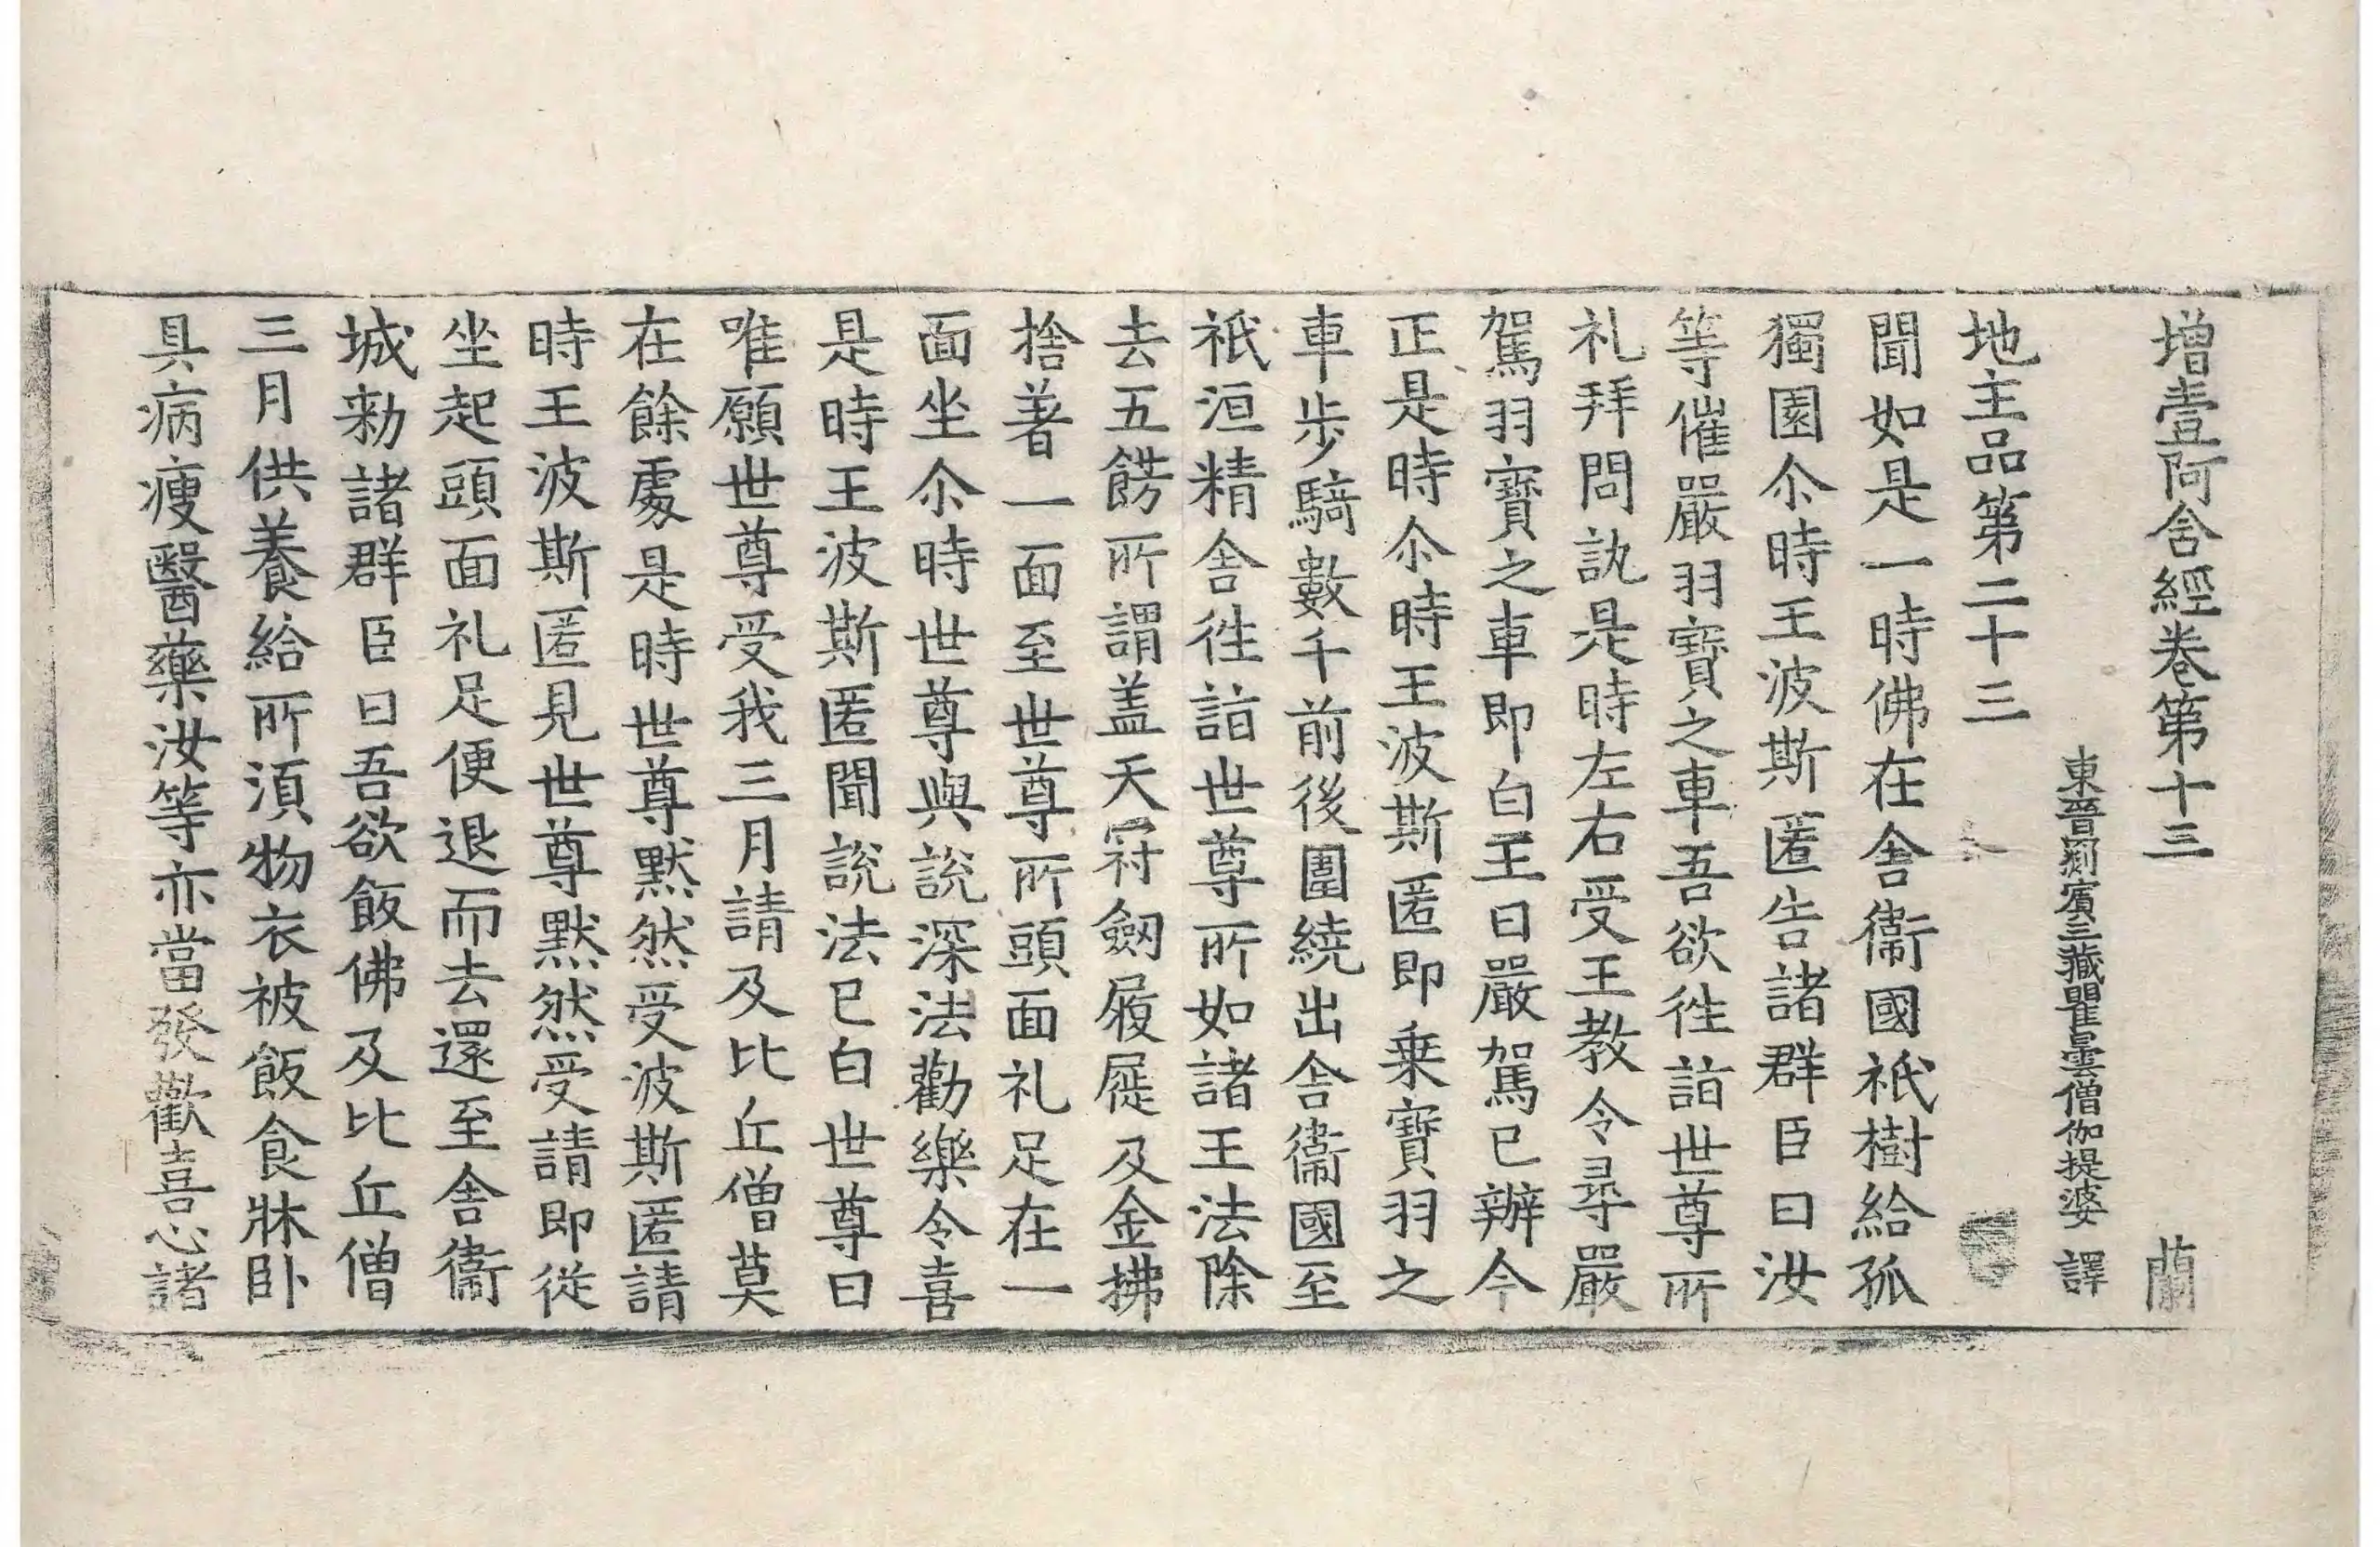 增壹阿含經卷第十三 蘭
東晉罽賓三藏瞿曇僧伽提婆 譯
地主品第二十三
聞如是一時佛在舍衞國祇樹給孤
獨園尒時王波斯匿告諸群臣曰汝
等催嚴羽寶之車吾欲徃詣世尊所
礼拜問訊是時左右受王教令尋嚴
駕羽寶之車即白王曰嚴駕已辦今
正是時尒時王波斯匿即乗寶羽之
車步騎數千前後圍繞出舍衞國至
祇洹精舍徃詣世尊所如諸王法除
去五餝所謂盖天冠劔履屣及金拂
捨著一面至世尊所頭面礼足在一
面坐尒時世尊與說深法勸樂令喜
是時王波斯匿聞說法已白世尊曰
唯願世尊受我三月請及比丘僧莫
在餘處是時世尊默然受波斯匿請
時王波斯匿見世尊默然受請即從
坐起頭面礼足便退而去還至舍衞
城勑諸群臣曰吾欲飯佛及比丘僧
三月供養給所湏物衣被飯食牀卧
具病瘦醫藥汝等亦當發歡喜心諸